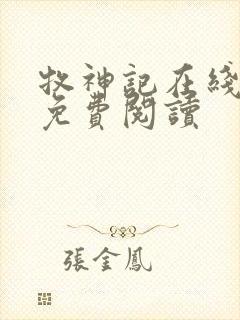 牧神記在綫
免費閱讀
張金鳳